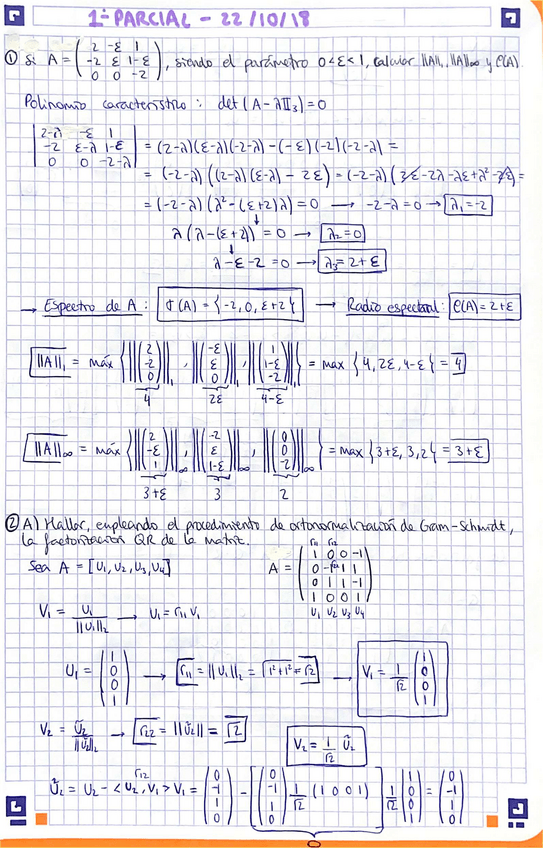 1er PARCIAL - 22/10/18
① Si A = ( 2 -ε 1 ; -2 ε 1-ε ; 0 0 -2 ), siendo el parámetro 0<ε<1, calcular ||A||₁, ||A||∞ y ρ(A).
Polinomio característico : det (A-λ𝕀₃) = 0
| 2-λ -ε 1 ; -2 ε-λ 1-ε ; 0 0 -2-λ | = (2-λ)(ε-λ)(-2-λ) - (-ε)(-2)(-2-λ) =
= (-2-λ) ((2-λ)(ε-λ) - 2ε) = (-2-λ) (2ε-2λ-λε+λ²-2ε) =
= (-2-λ) (λ²-(ε+2)λ) = 0 → -2-λ = 0 → λ₁=-2
λ (λ-(ε+2)) = 0 → λ₂=0
λ-ε-2 = 0 → λ₃=2+ε
→ Espectro de A : σ(A) = {-2, 0, ε+2} → Radio espectral: ρ(A)=2+ε
||A||₁ = máx { ||( 2 ; -2 ; 0 )||₁ , ||( -ε ; ε ; 0 )||₁ , ||( 1 ; 1-ε ; -2 )||₁ } = max {4, 2ε, 4-ε} = 4
4 2ε 4-ε
||A||∞ = máx { ||( 2 ; -ε ; 1 )||∞ , ||( -2 ; ε ; 1-ε )||∞ , ||( 0 ; 0 ; -2 )||∞ } = max {3+ε, 3, 2} = 3+ε
3+ε 3 2
② A) Hallar, empleando el procedimiento de ortonormalización de Gram-Schmidt,
la factorización QR de la matriz.
r₁₁ r₁₂
Sea A = [U₁, U₂, U₃, U₄] A = ( 1 0 0 -1 ; 0 -1 1 1 ; 0 1 1 -1 ; 1 0 0 1 )
U₁ U₂ U₃ U₄
V₁ = U₁ / ||U₁||₂ → U₁ = r₁₁ V₁
U₁ = ( 1 ; 0 ; 0 ; 1 ) → r₁₁ = ||U₁||₂ = √1²+1² = √2 → V₁ = 1/√2 ( 1 ; 0 ; 0 ; 1 )
V₂ = Ũ₂ / ||Ũ₂||₂ → r₂₂ = ||Ũ₂|| = √2 V₂ = 1/√2 Ũ₂
r₁₂
Ũ₂ = U₂ - <U₂, V₁> V₁ = ( 0 ; -1 ; 1 ; 0 ) - [ ( 0 ; -1 ; 1 ; 0 ) 1/√2 (1 0 0 1) ] 1/√2 ( 1 ; 0 ; 0 ; 1 ) = ( 0 ; -1 ; 1 ; 0 )
0